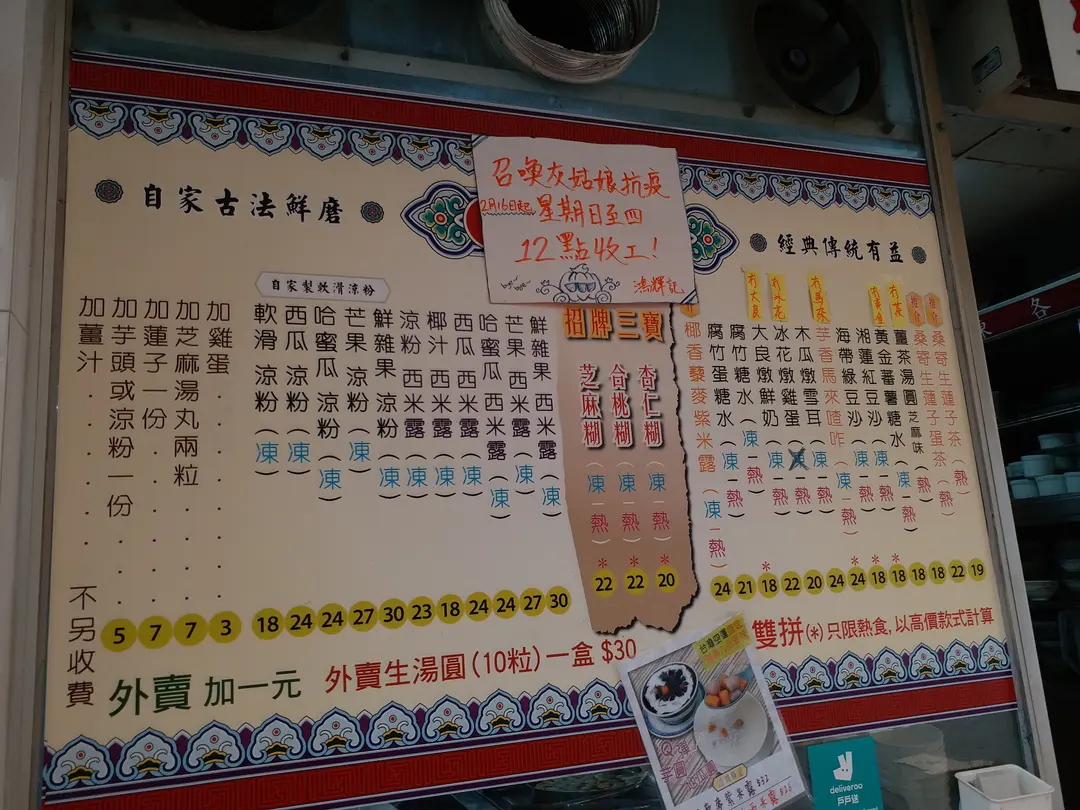 召喚灰姑娘抗疫
2月16日起 星期日至四
12點收工!
bye~ bye~
鴻輝記
經典傳統有益
推介
桑寄生蓮子茶(熱) 19
推介
桑寄生蓮子蛋茶(熱) 22
冇茶
薑茶湯圓 芝麻味(熱) 18
冇黃金
黃金蕃薯糖水(凍一熱) * 18
湘蓮紅豆沙(凍一熱) * 18
海帶綠豆沙(凍一熱) * 18
冇馬來
芋香馬來喳咋(凍一熱) * 24
木瓜燉雪耳(凍一熱) 24
冇冰花
冰花燉雞蛋(凍一熱) 20
冇大良
大良燉鮮奶(凍一熱) 22
腐竹糖水(凍一熱) * 18
腐竹蛋糖水(凍一熱) 21
椰香藜麥紫米露(凍一熱) 24
雙拼(*)只限熱食,以高價款式計算
招牌三寶
杏仁糊(凍一熱) * 20
合桃糊(凍一熱) * 22
芝麻糊(凍一熱) * 22
自家古法鮮磨
自家製軟滑涼粉
鮮雜果西米露(凍) 30
芒果西米露(凍) 27
哈蜜瓜西米露(凍) 24
西瓜西米露(凍) 24
椰汁西米露(凍) 18
涼粉西米露(凍) 23
鮮雜果涼粉(凍) 30
芒果涼粉(凍) 27
哈蜜瓜涼粉(凍) 24
西瓜涼粉(凍) 24
軟滑涼粉(凍) 18
加雞蛋 3
加芝麻湯丸兩粒 7
加蓮子一份 7
加芋頭或涼粉一份 5
加薑汁 不另收費
外賣 加一元
外賣生湯圓(10粒)一盒 $30
台灣空運
$32
deliveroo
戶戶送